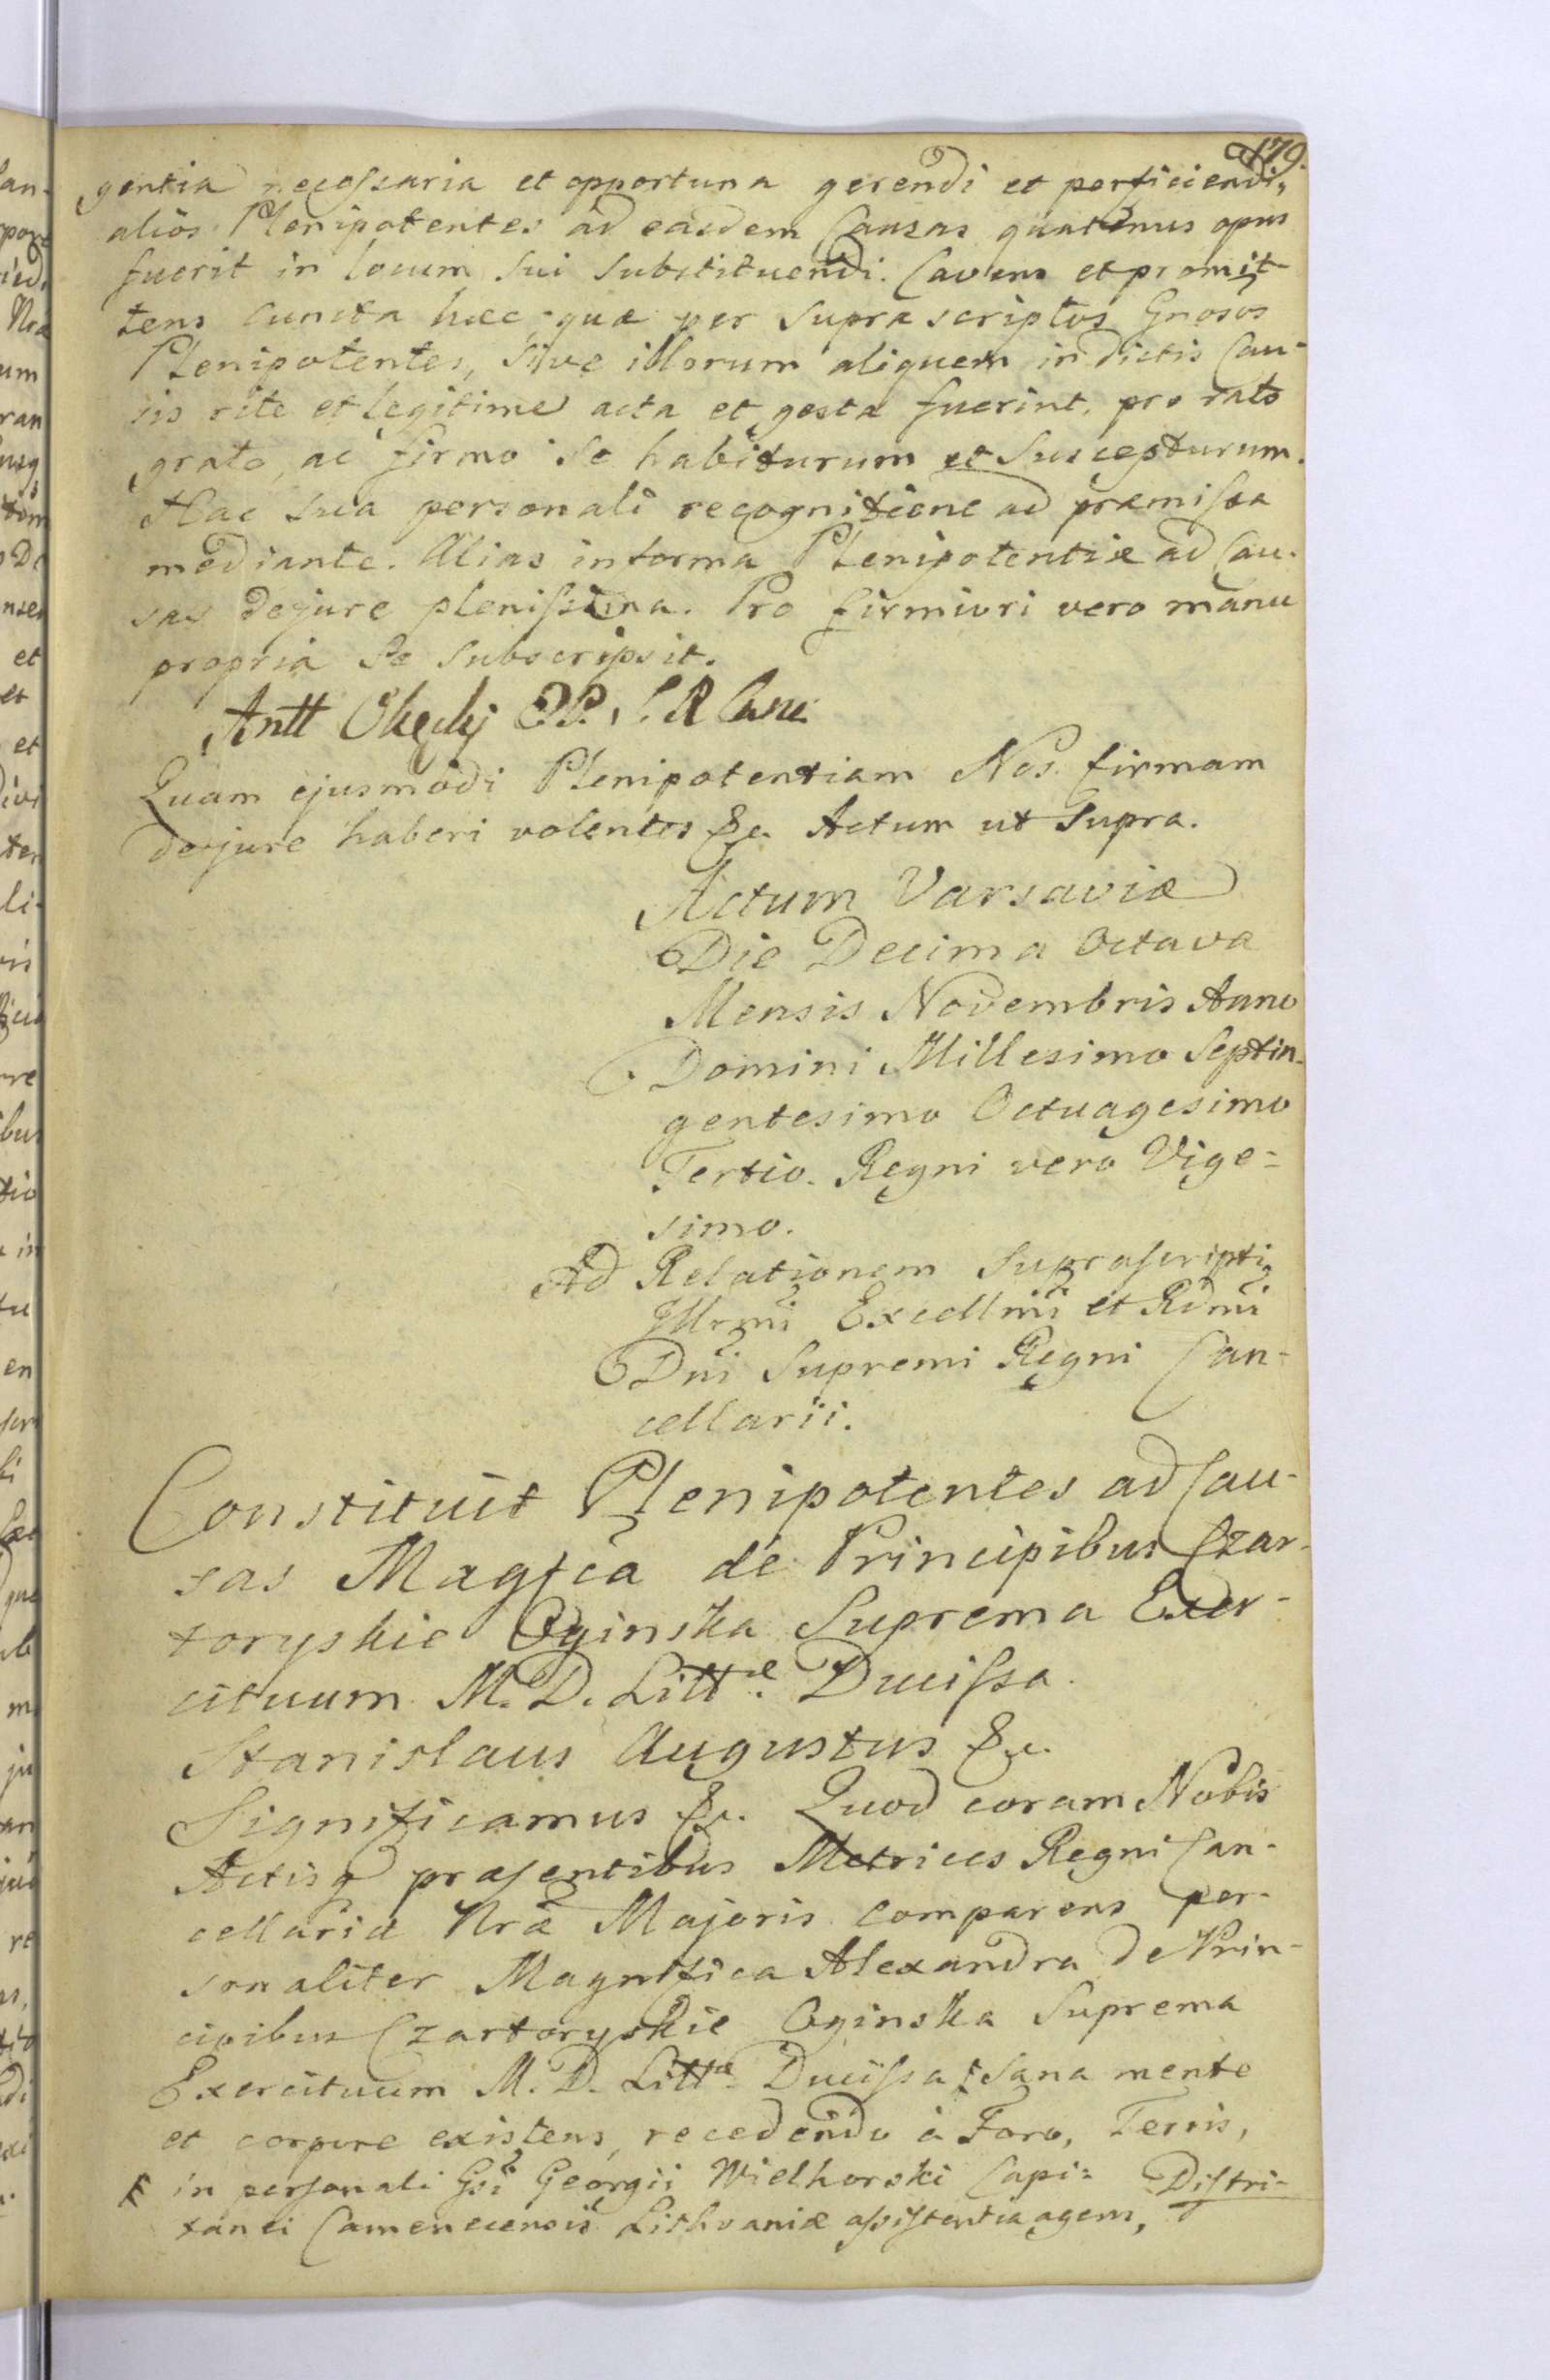 179.
gentia necessaria et opportuna gerendi et perficiendi,
alios Plenipotentes ad easdem Causas quatenus opus
fuerit in locum sui substituendi. Cavens et promit-
tens cuncta haec quae per supra scriptos Gnosos
Plenipotentes, sive illorum aliquem in dictis Cau-
sis rite et legitime acta et gesta fuerint, pro rato
grato, ac firmo se habiturum et suscepturum.
Hac sua personali recognitione ad praemissa
mediante. Alias in forma Plenipotentiae ad Cau-
sas de jure plenissima. Pro firmiori vero manu
propria se subscripsit.
Antt Okęcky
Quam ejusmodi Plenipotentiam Nos firmam
de jure haberi volentes &c. Actum ut Supra.
Actum Varsaviae
Die Decima Octava
Mensis Novembris Anno
Domini Millesimo Septin-
gentesimo Octuagesimo
Tertio. Regni vero Vige-
simo.
Ad Relationem Suprascripti
Illrmi Excellmi et Rdmi
Dni Supremi Regni Can-
cellarii.
Constituit Plenipotentes ad Cau-
sas Magfca de Principibus Czar-
toryskie Oginska Suprema Exer-
cituum M. D. Littae Ducissa.
Stanislaus Augustus &c.
Significamus &c. Quod coram Nobis
Actisq praesentibus Metrices Regni Can-
cellariae Nrae Majoris comparens per-
sonaliter Magnifica Alexandra de Prin-
cipibus Czartoryskie Oginska Suprema
Exercituum M. D. Littae Ducissa sana mente
et corpore existens, recedendo à Foro, Terris,
in personali Gsi Georgii Wielhorski Capi- Distri-
tanei Camenecensis Lithvaniae assistentia agens,